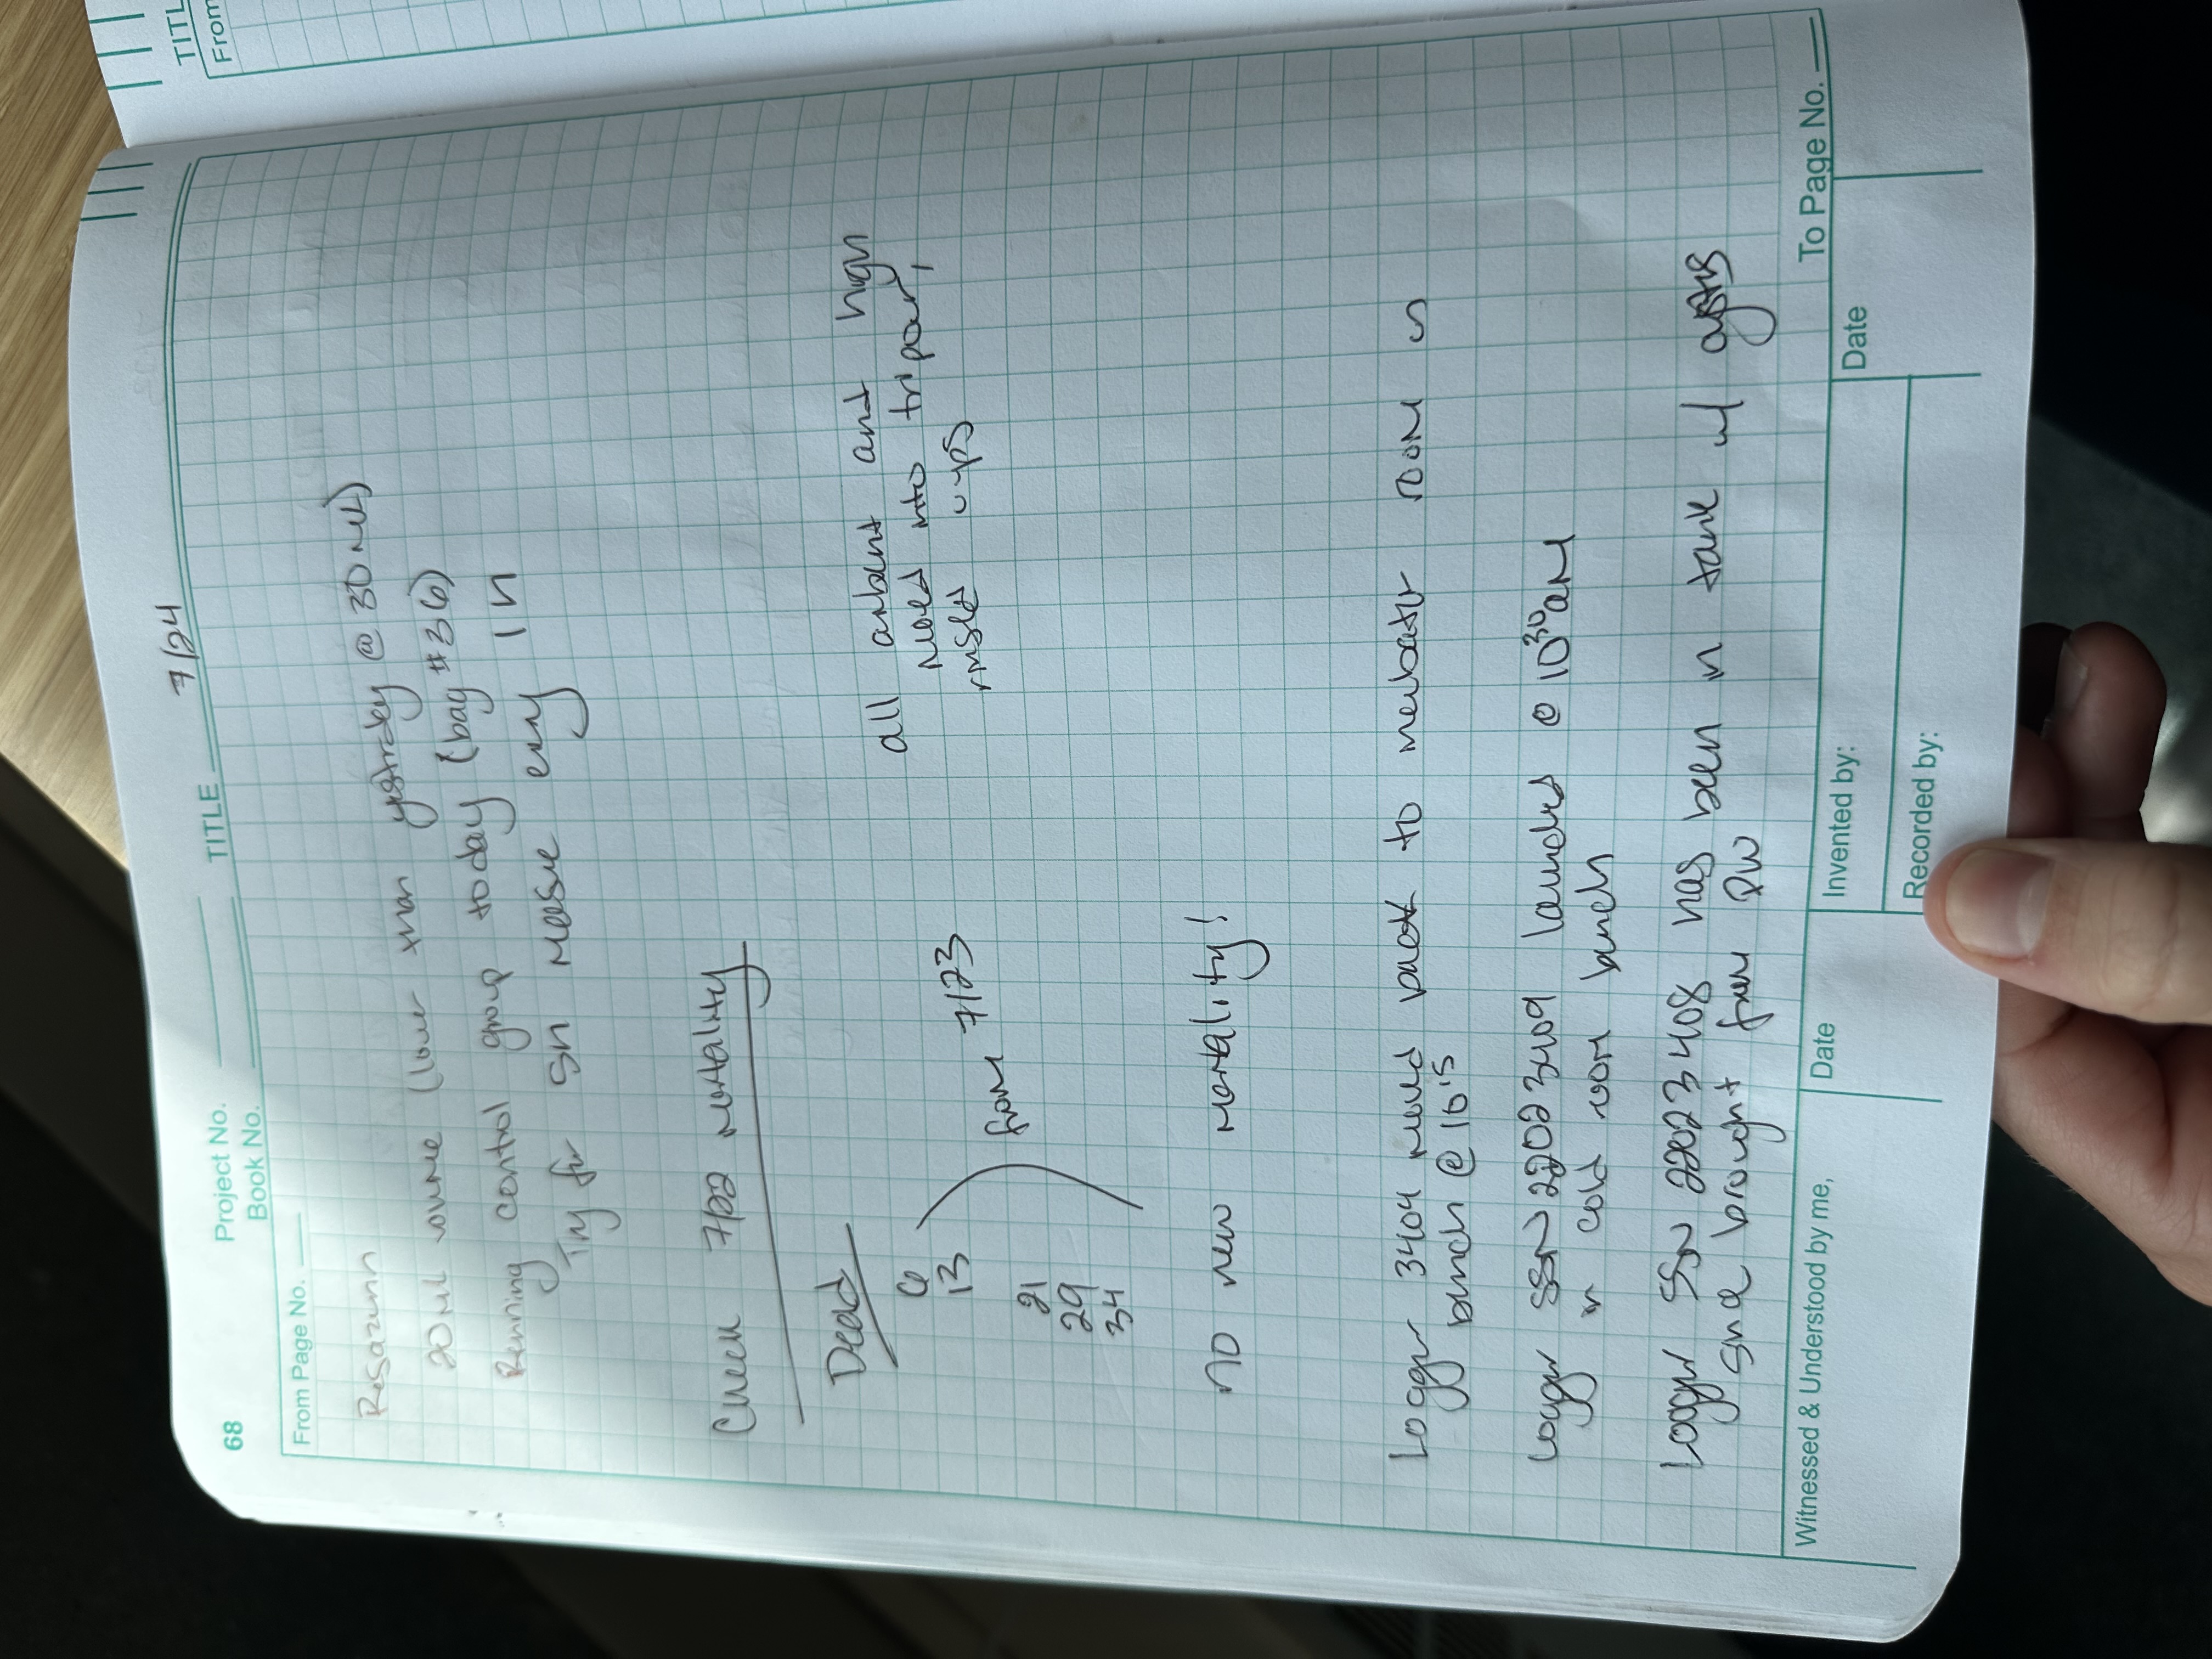 68
Project No.
Book No.
TITLE 7/24
From Page No.
Resazurin
20mL volume (lower than yesterday @ 30 mL)
Running control group today (bag #36)
Try for 5h measure every 1h
Check 7/22 mortality
Dead
6
13
21
29
34
from 7/23
all ambient and high
moved into tripour,
rinsed cups
no new mortality!
Logger 3404 moved back to incubator room on
bench @ 10 15
Logger SSN 22023409 launched @ 10 30 am
in cold room bench
Logger SSN 22023408 has been in tank w/ oysters
since brought from PW
To Page No.
Witnessed & Understood by me,
Date
Invented by:
Date
Recorded by:
TITL
From